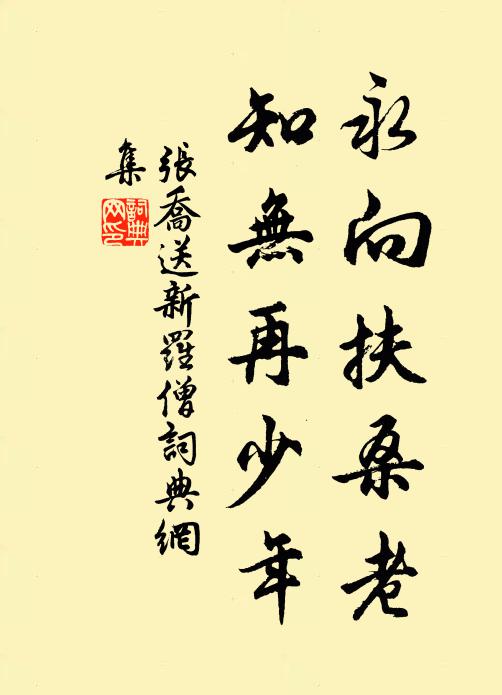 永向扶桑老
知無再少年
張喬送新羅僧詞典網
集
詞典
网印